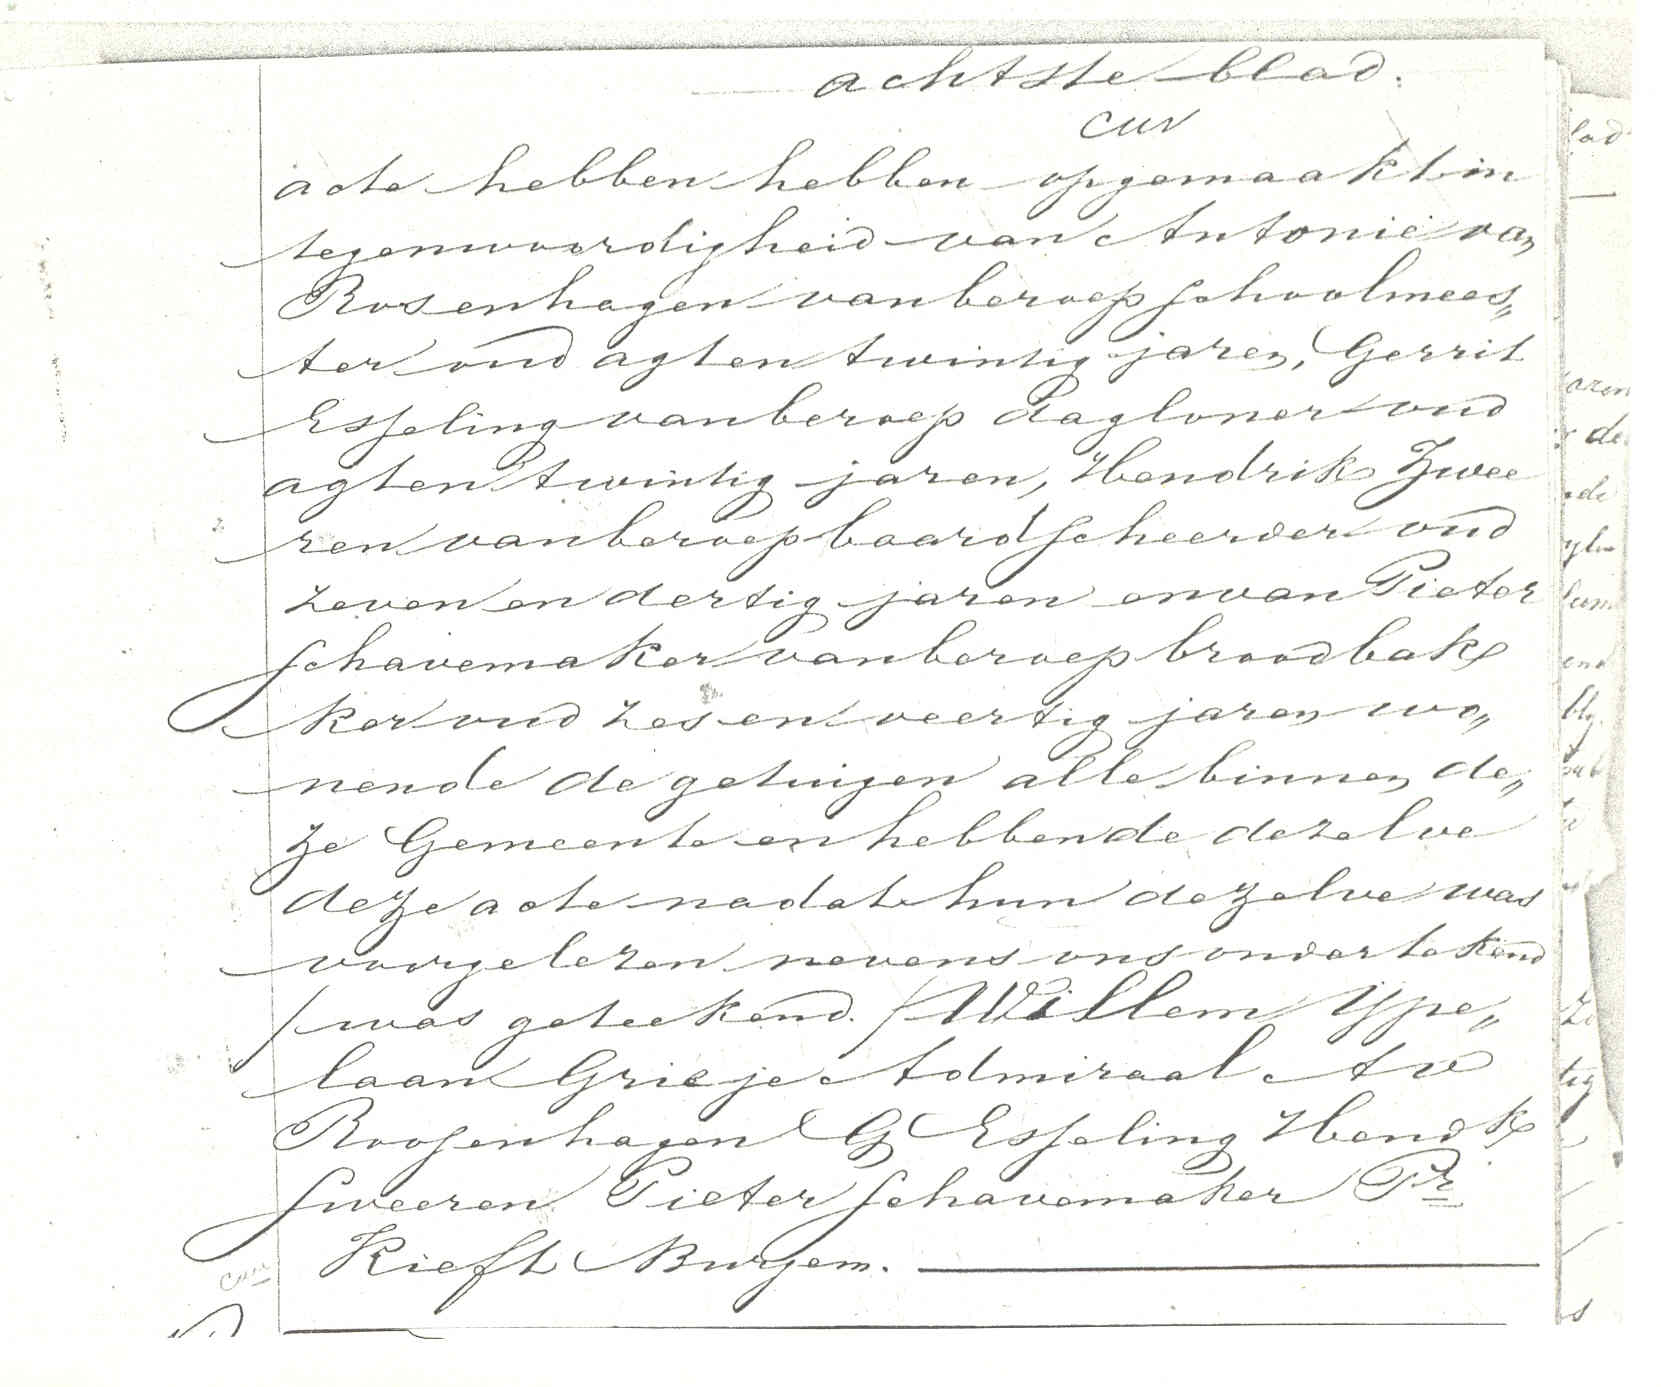 achtste blad.
acte hebben hebben opgemaakt in
tegenwoordigheid van Antonie van
Rosenhagen van beroep schoolmees„
ter oud agten twintig jaren, Gerrit
Esseling van beroep dagloner oud
agten twintig jaren, Hendrik Zwee
ren van beroep baardscheerder oud
zeven en dertig jaren en van Pieter
Schavemaker van beroep broodbak
ker oud zes en veertig jaren wo„
nende de getuigen alle binnen de„
ze Gemeente en hebbende dezelve
deze acte nadat hun dezelve was
voorgelezen nevens ons ondertekend
/was geteekend./ Willem Ype„
laan Grietje Admiraal A v
Roosenhagen G Esseling Hendk
Sweeren Pieter Schavemaker Pr.
Kieft Burgem.